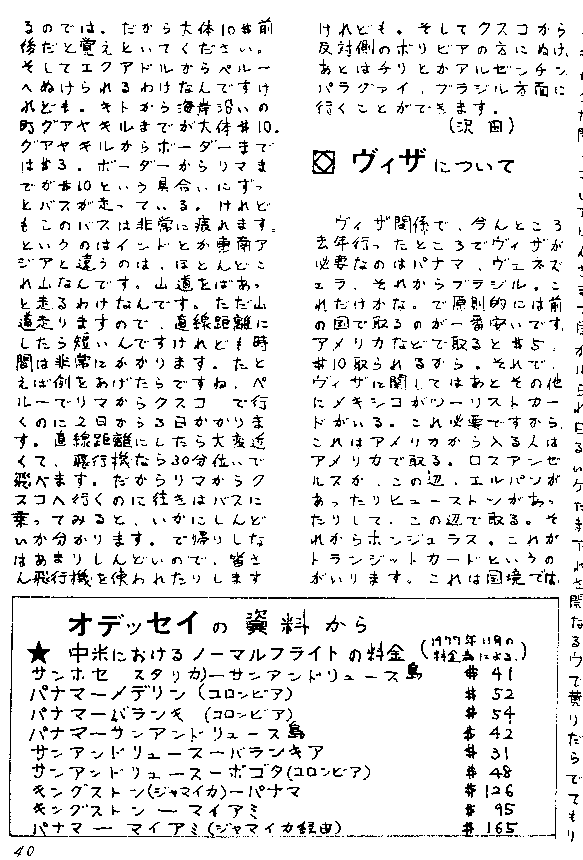 るのでは。だから大体10$前
後だと覚えといてください。
そしてエクアドルからペルー
へぬけられるわけなんですけ
れども。キトから海岸沿いの
町グアヤキルまでが大体$10.
グアヤキルからボーダーまで
は$3。ボーダーからリマま
でが$10という具合いにずっ
とバスが走っている。けれど
もこのバスは非常に疲れます。
というのはインドとか東南ア
ジアと違うのは、ほとんどこ
れ山なんです。山道をばあっ
と走るわけなんです。ただ山
道走りますので、直線距離に
したら短いんですけれども時
間は非常にかかります。たと
えば例をあげたらですね、ペ
ルーでリマからクスコ で行
くのに2日から3日かかりま
す。直線距離にしたら大変近
くて、飛行機なら30分位いで
飛べます。だからリマからク
スコへ行くのに往きはバスに
乗ってみると、いかにしんど
いか分かります。で帰りしな
はあまりしんどいので、皆さ
ん飛行機を使われたりします
けれども。そしてクスコから
反対側のボリビアの方にぬけ、
あとはチリとかアルゼンチン
パラグァイ、ブラジル方面に
行くことができます。
(沢田)
ヴィザについて
ヴィザ関係で、今んところ
去年行ったところでヴィザが
必要なのはパナマ、ヴェネズ
エラ、それからブラジル。こ
れだけかな。で原則的には前
の国で取るのが一番安いです。
アメリカなどで取ると$5、
$10取られるから。それで、
ヴィザに関してはあとその他
にメキシコがツーリストカー
ドがいる。これ必要ですから、
これはアメリカから入る人は
アメリカで取る。ロスアンゼ
ルスか、この辺、エルパソが
あったりヒューストンがあっ
たりして、この辺で取る。そ
れからホンジュラス。これが
トランジットカードというの
がいります。これは国境では、
オデッセイの資料から
★ 中米におけるノーマルフライトの料金(1977年11月の料金表による。)
サンホセ スタリカ)ーサンアンドリュース島 $ 41
パナマーメデリン(コロンビア) $ 52
パナマーバランキ (コロンビア) $ 54
パナマーサンアンドリュース島 $ 42
サンアンドリュースーバランキア $ 31
サンアンドリュースーボゴタ(コロンビア) $ 48
キングストン(ジャマイカ)ーパナマ $ 126
キングストンーマイアミ $ 95
パナマーマイアミ(ジャマイカ経由) $ 165
40